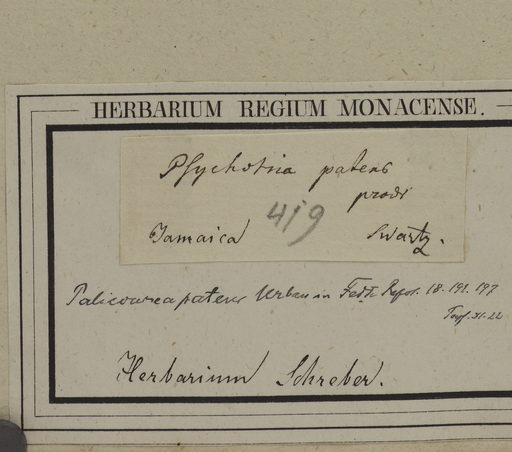 HERBARIUM REGIUM MONACENSE.
Psychotria patens
prodr
Jamaica 419 Swartz.
Palicourea patens Urban in Fedde Repert. 18. 191. 197
31-22
Herbarium Schreber.